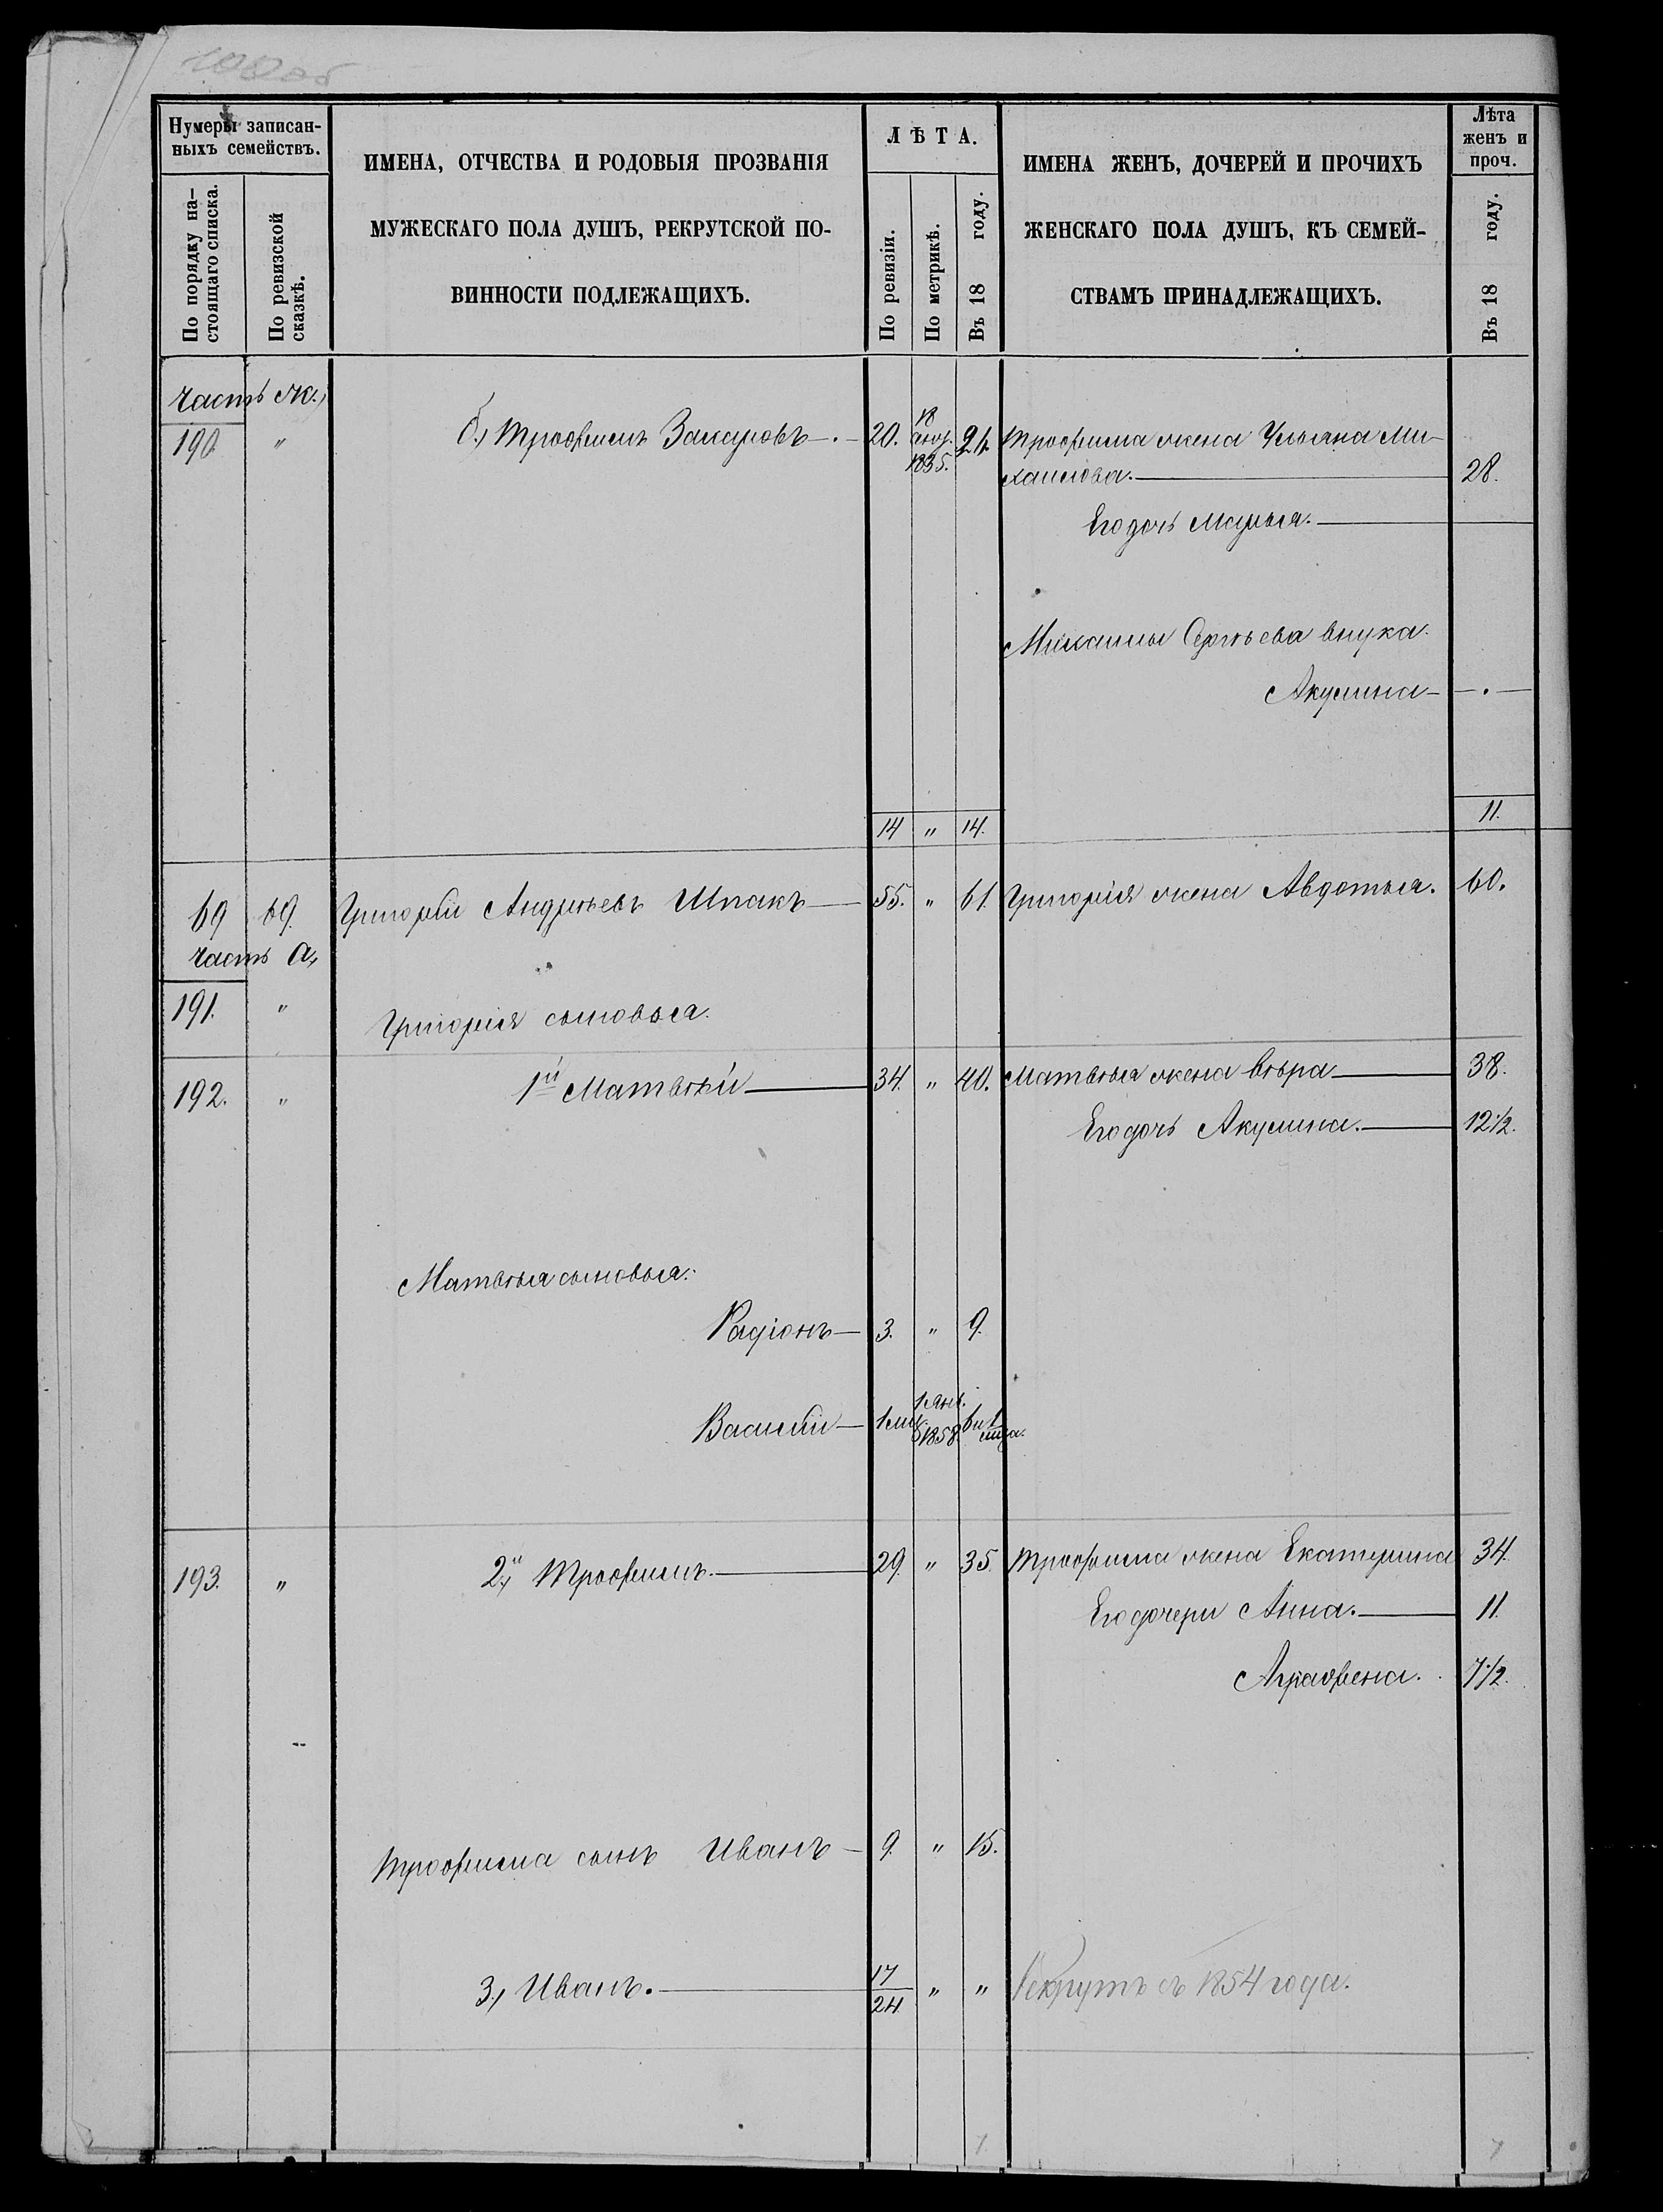 100 об
Нумеры записан-
ныхъ семействъ.
По порядку на-
стоящаго списка.
По ревизской
сказкѣ.
ИМЕНА, ОТЧЕСТВА И РОДОВЫЯ ПРОЗВАНІЯ
МУЖЕСКАГО ПОЛА ДУШЪ, РЕКРУТСКОЙ ПО-
ВИННОСТИ ПОДЛЕЖАЩИХЪ.
ЛѢТА.
По ревизіи.
По метрикѣ.
Въ 18 году.
ИМЕНА ЖЕНЪ, ДОЧЕРЕЙ И ПРОЧИХЪ
ЖЕНСКАГО ПОЛА ДУШЪ, КЪ СЕМЕЙ-
СТВАМЪ ПРИНАДЛЕЖАЩИХЪ.
Лѣта
женъ и
проч.
Въ 18 году.
часть ж.,
190. " б., Трофимъ Захаровъ 20. 18 1835. Трофима жена Ульяна Ми-
хаилова. 28.
Его дочь Марья.
Микиты Сергѣева внука
Акулина
14 " 14. 11.
69 69. Григорій Андреевъ Шпакъ 55. " 61. Григорія жена Авдотья. 60.
часть а,
191. " Григорія сыновья.
192. " 1й Матвѣй 34. " 40. Матвѣя жена Вѣра 38.
Его дочь Акулина. 12 1/2.
Матвѣя сыновья:
Радіонъ 3. " 9.
Василій 1 янв. 1858.
193. " 2й, Трофимъ. 29. " 35 Трофима жена Екатерина 34.
Его дочери Анна. 11.
Аграфена. 7 1/2.
Трофима сынъ Иванъ 9. " 15.
3., Иванъ. 17
24 " " Рекрутъ съ 1854 года.
7 7